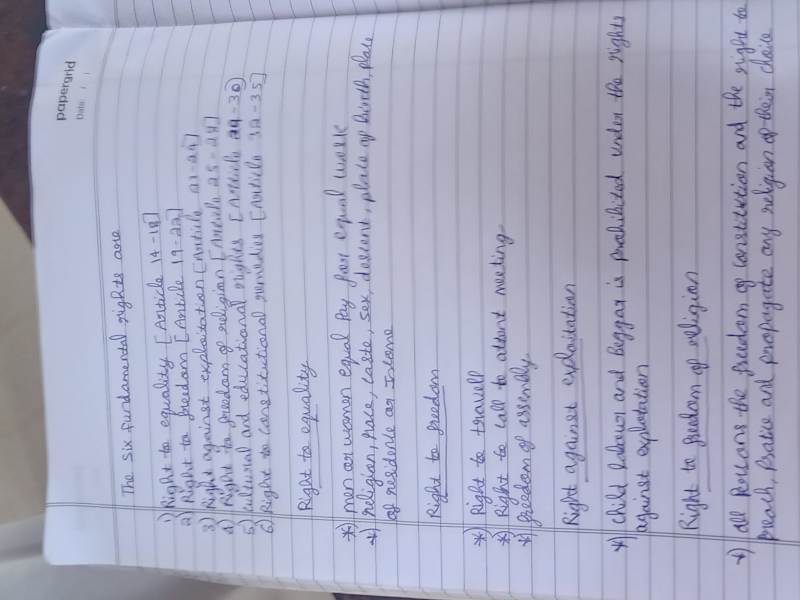 papergrid
Date: / /
The Six fundamental rights are
1) Right to equality [Article 14-18]
2) Right to freedom [Article 19-22]
3) Right against exploitation [Article 23-24]
4) Right to freedom of religion [Article 25-28]
5) Cultural and educational rights [Article 29-30]
6) Right to constitutional remedies [Article 32-35]
Right to equality
*) men or women equal Pay for equal work
*) religion, race, caste, sex, descent, place of birth, place
of residence or Intane
Right to freedom
*) Right to travell
*) Right to call to attent meeting
*) freedom of assembly
Right against exploitation
*) Child labour and Beggar is prohibited under the rights
against explotation
Right to freedom of religion
*) all Persons the freedom of constitution and the right to
Preach, Pratice and propagate any religion of their choice